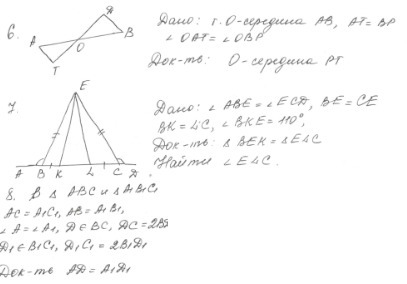 6.
А
О
В
Т
Дано: т. О-середина АВ, АТ=ВР
∠ОАТ=∠ОВР
Док-ть: О-середина РТ
7.
Е
А В К L С D
Дано: ∠АВЕ=∠ЕСD, ВЕ=СЕ
ВК=LC, ∠ВКЕ=110°,
Док-ть: ΔВЕК=ΔЕLC
Найти ∠ELC.
8. В ΔАВС и ΔА1В1С1
АС=А1С1, АВ=А1В1,
∠А=∠А1, D∈ВС, DC=2ВD
D1∈В1С1, D1С1=2В1D1
Док-ть АD=А1D1